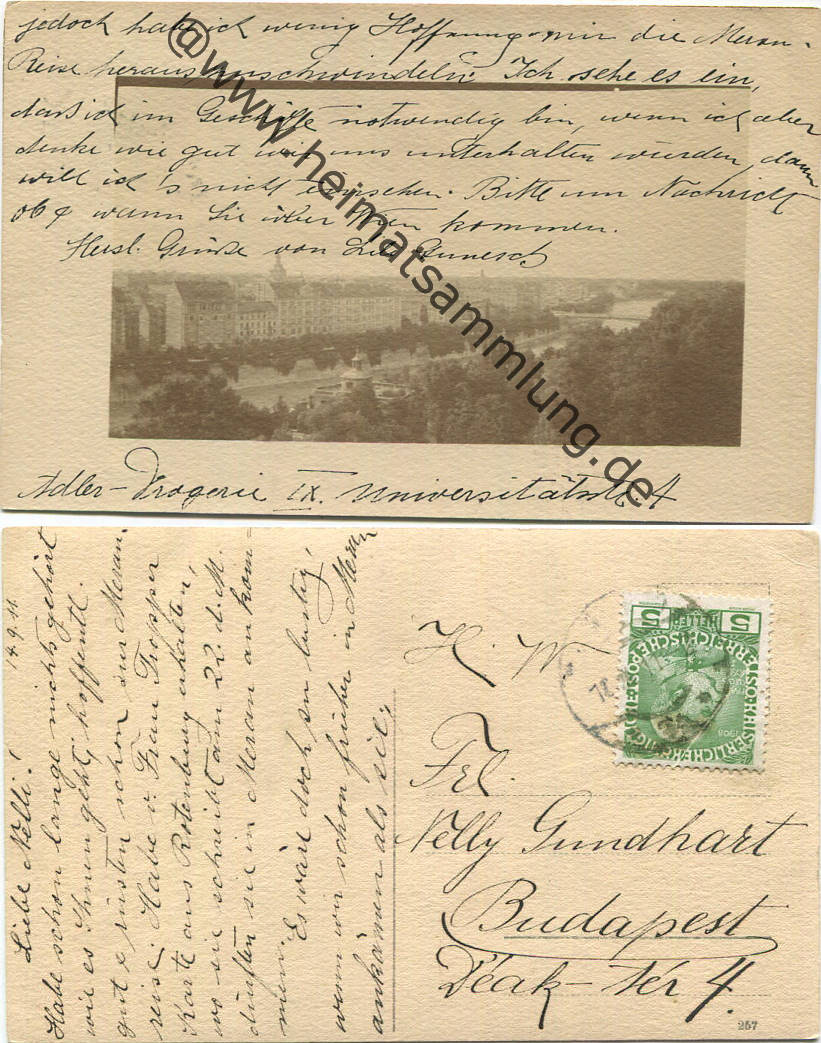 jedoch habe ich wenig Hoffnung mir die Meran-
Reise herauszuschwindeln. Ich sehe es ein,
daß ich im Geschäfte notwendig bin, wenn ich aber
denke wie gut wir uns unterhalten würden, dann
will ich's nicht einsehen. Bitte um Nachricht
ob & wann Sie über Wien kommen.
Herzl. Grüße von
Adler-Drogerie IX. Universitätsstr. 4
@www.heimatsammlung.de
14.9.11.
Liebe Nelli!
Habe schon lange nichts gehört
wie es Ihnen geht, hoffentl.
gut & rüsten schon zur Meran-
reise. Habe v. Frau Tropper
Karte aus Rotenburg erhalten,
wo sie schreibt am 22. d. M.
dürften sie in Meran ankom-
men.
Es wäre doch zu lustig,
wenn wir schon früher in Meran
ankämen als sie,
H. W.
Frl.
Nelly Gundhart
Budapest
Deák-tér 4.
5 HELLER 5
KAISERLICHE KÖNIGLICHE ÖSTERREICHISCHE POST
1908
257